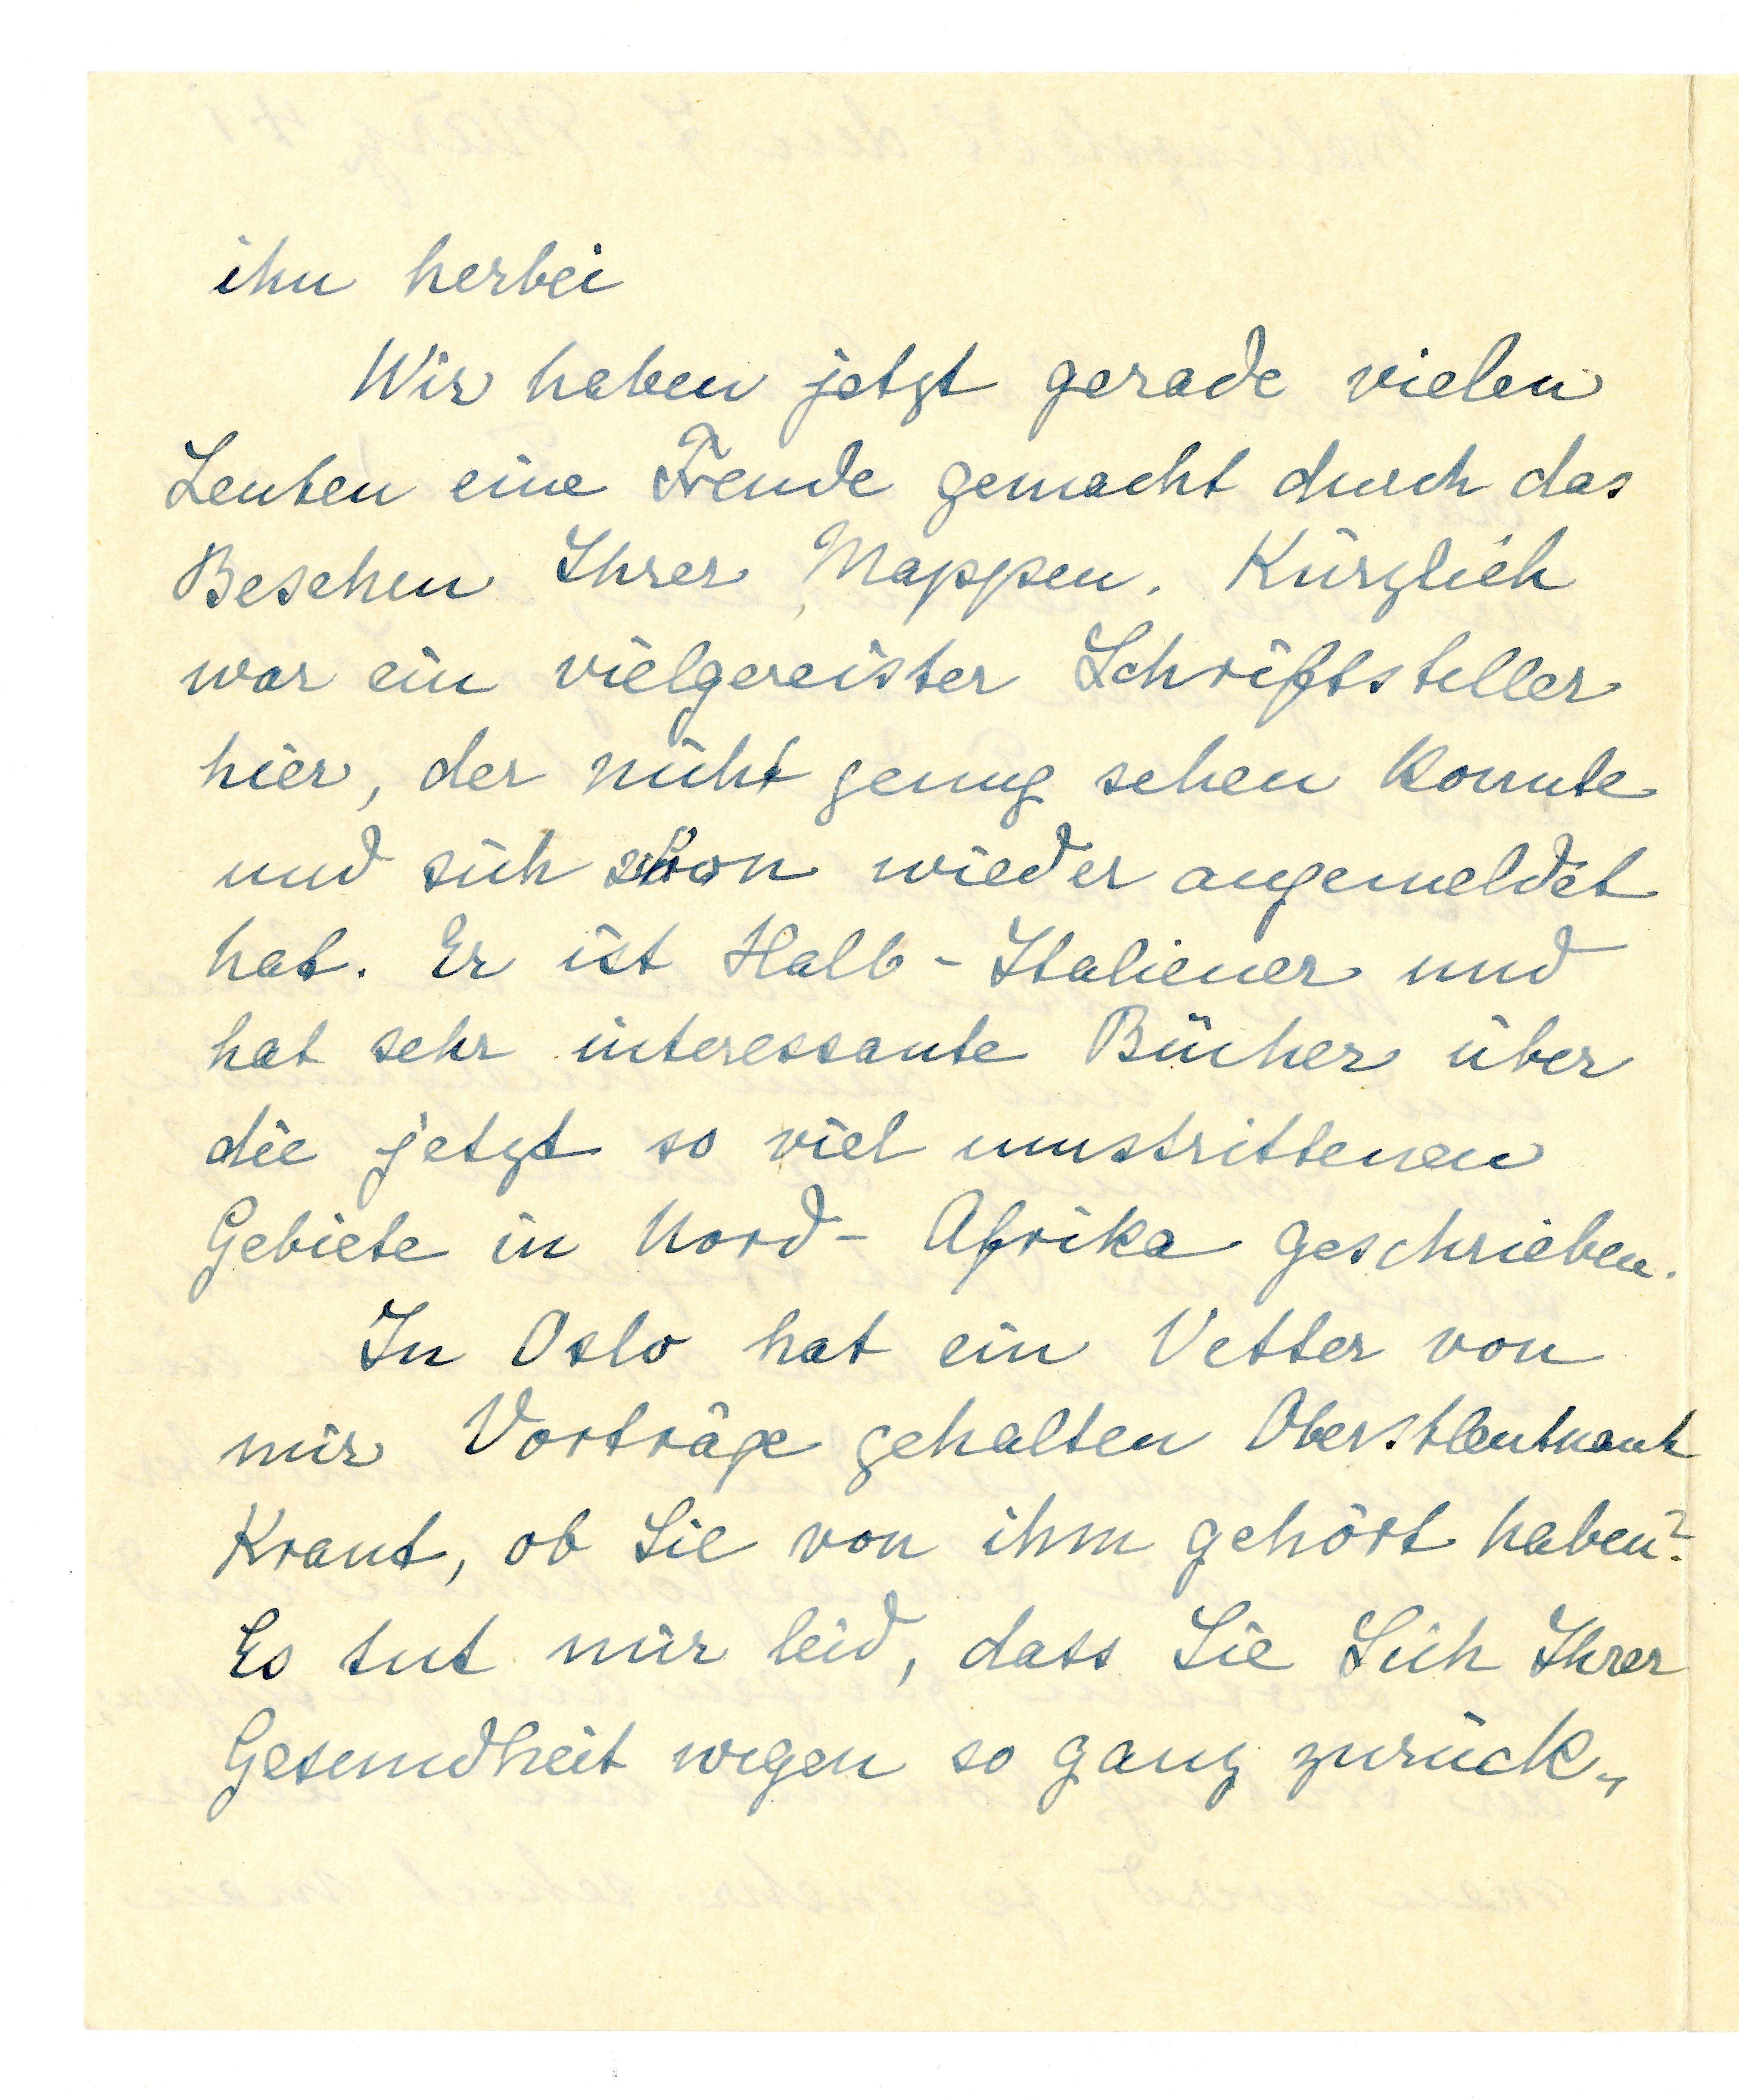 ihn herbei
Wir haben jetzt gerade vielen
Leuten eine Freude gemacht durch das
Besehen Ihrer Mappen. Kürzlich
war ein vielgereister Schriftsteller
hier, der nicht genug sehen konnte
und sich schon wieder angemeldet
hat. Er ist Halb-Italiener und
hat sehr interessante Bücher über
die jetzt so viel umstrittenen
Gebiete in Nord-Afrika geschrieben.
In Oslo hat ein Vetter von
mir Vorträge gehalten Oberstleutnant
Kraut, ob Sie von ihm gehört haben?
Es tut mir leid, dass Sie Sich Ihrer
Gesundheit wegen so ganz zurück-